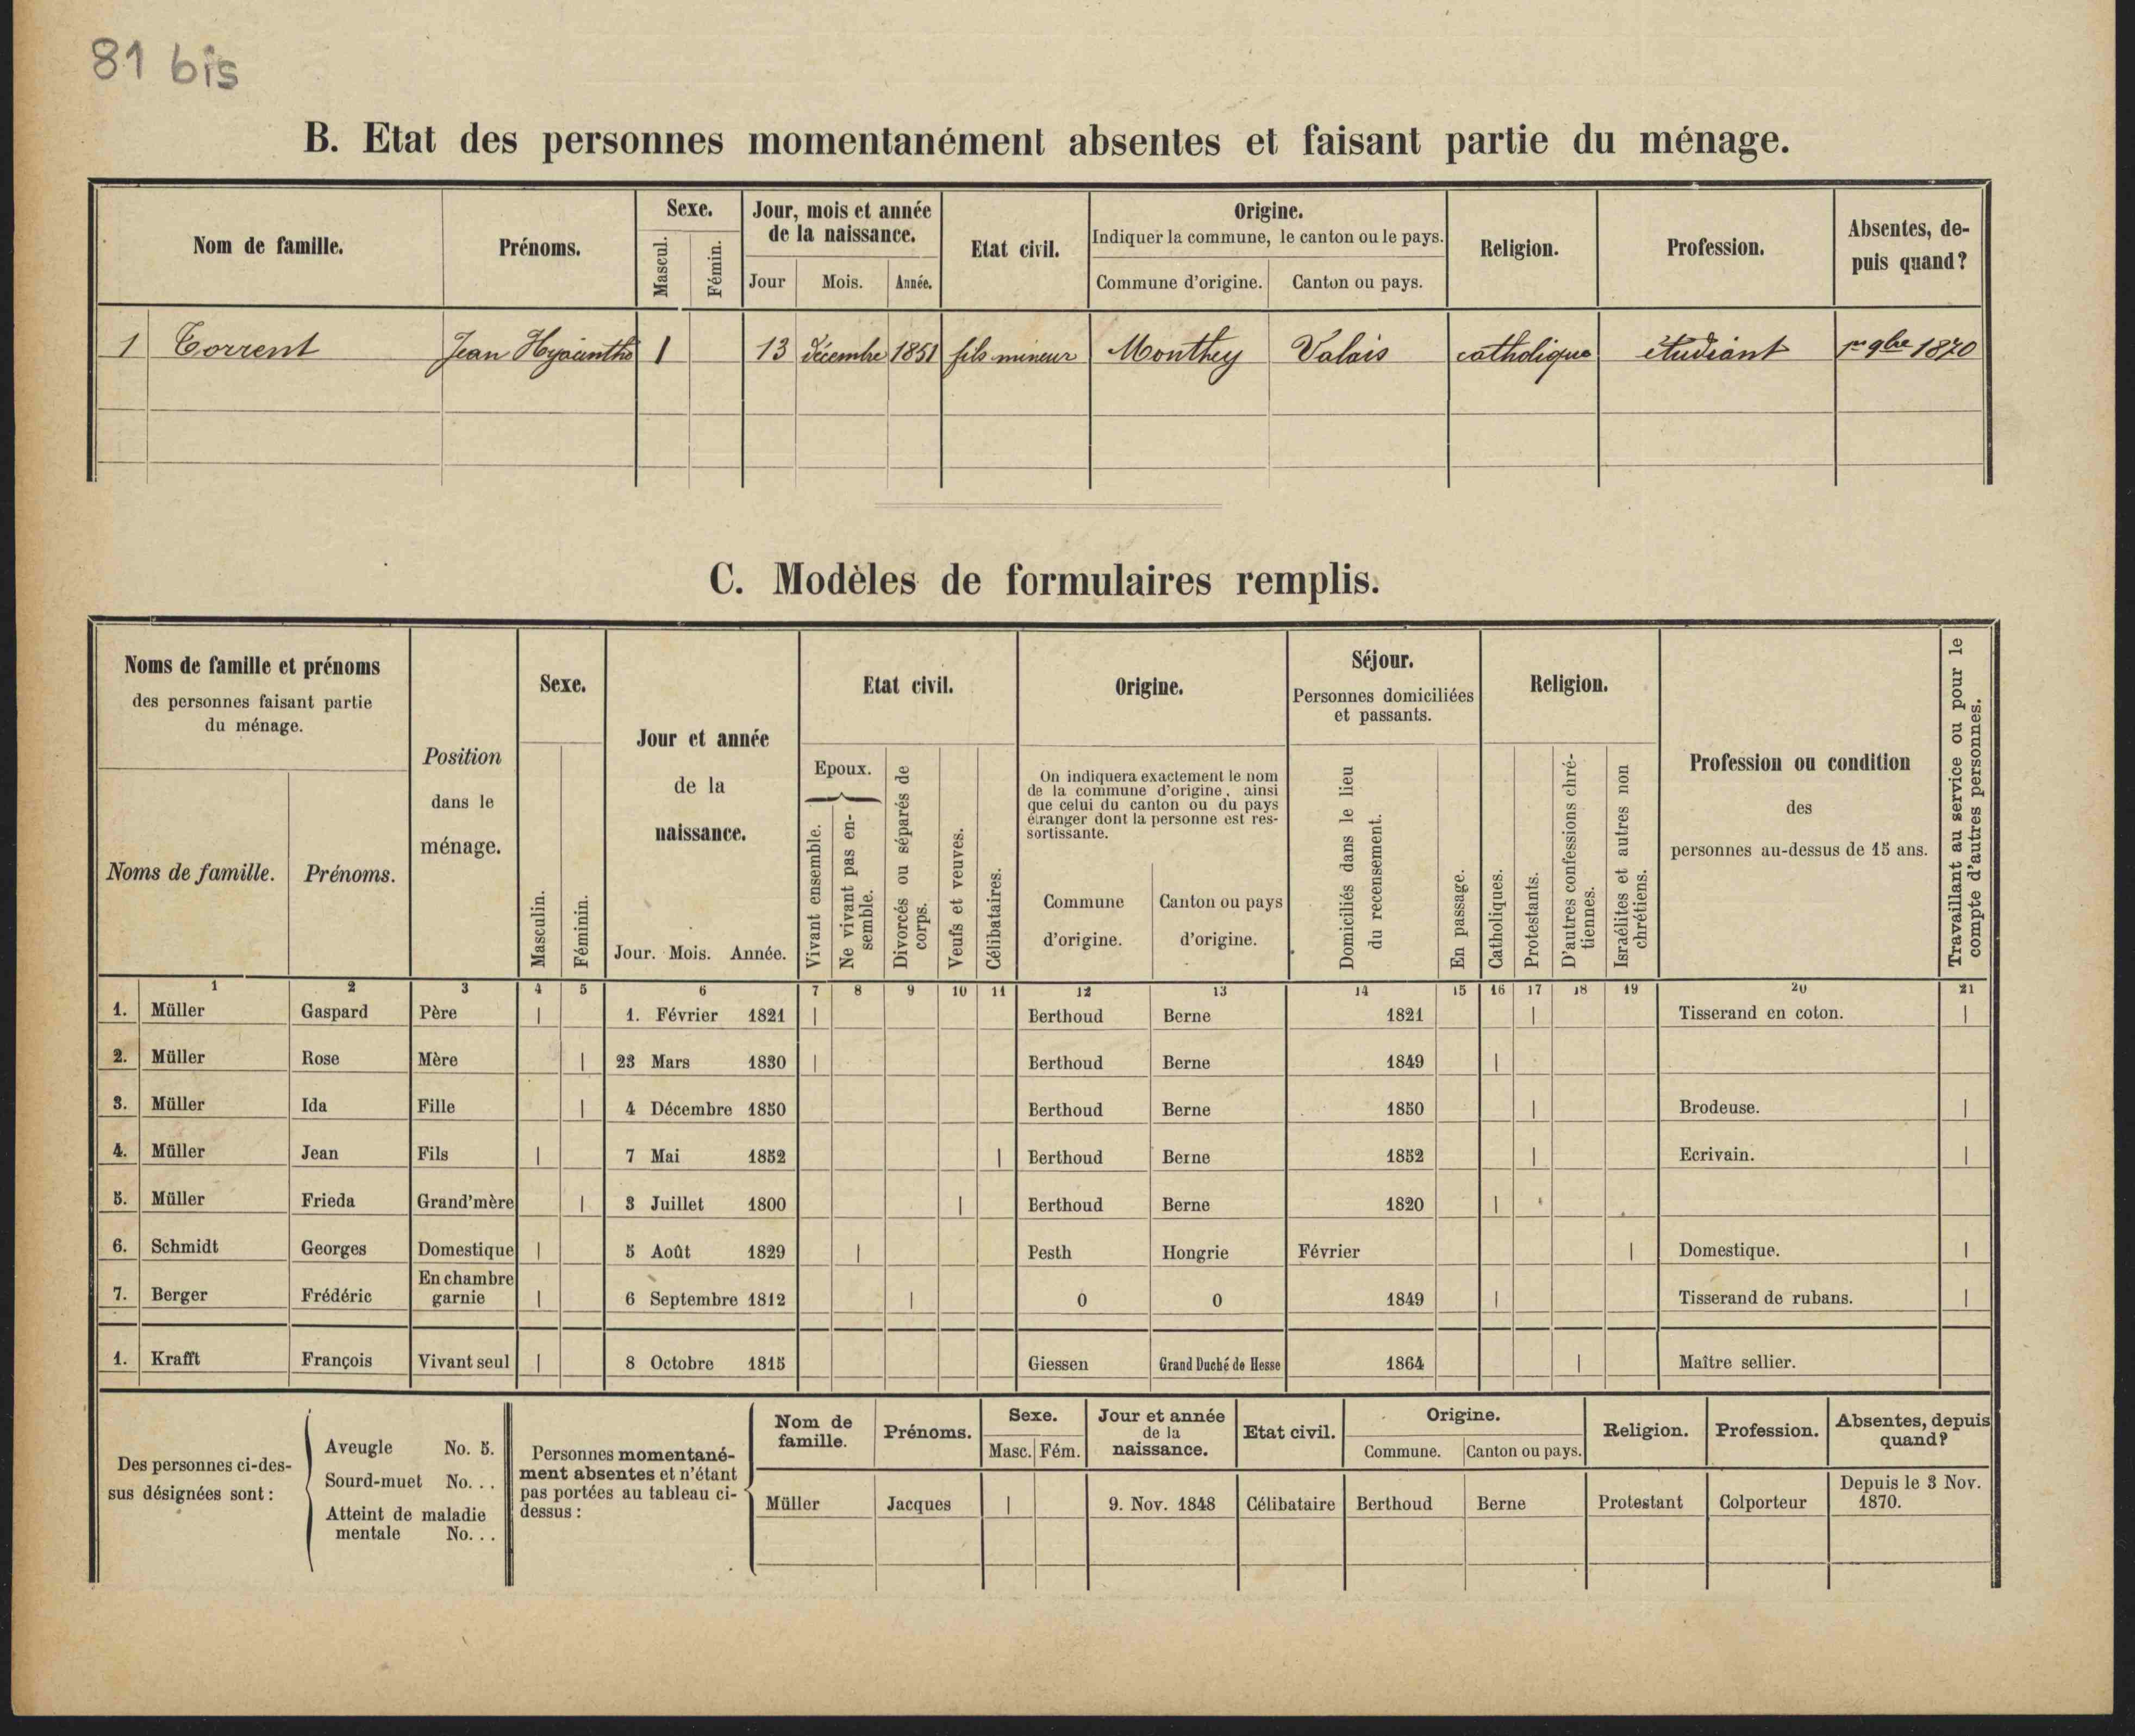 81 bis
B. Etat des personnes momentanément absentes et faisant partie du ménage.
Nom de famille. Prénoms. Sexe. Mascul. Fémin. Jour, mois et année de la naissance. Jour Mois. Année. Etat civil. Origine. Indiquer la commune, le canton ou le pays. Commune d'origine. Canton ou pays. Religion. Profession. Absentes, de-
puis quand?
1 Torrent Jean Hyacinthe 1 13 décembre 1851 fils mineur Monthey Valais catholique étudiant 1er 9bre 1870
C. Modèles de formulaires remplis.
Noms de famille et prénoms
des personnes faisant partie
du ménage.
Noms de famille. Prénoms.
Position
dans le
ménage.
Sexe.
Masculin. Féminin.
Jour et année
de la
naissance.
Jour. Mois. Année.
Etat civil.
Epoux.
Vivant ensemble.
Ne vivant pas en-
semble.
Divorcés ou séparés de
corps.
Veufs et veuves.
Célibataires.
Origine.
On indiquera exactement le nom
de la commune d'origine, ainsi
que celui du canton ou du pays
étranger dont la personne est res-
sortissante.
Commune
d'origine.
Canton ou pays
d'origine.
Séjour.
Personnes domiciliées
et passants.
Domiciliés dans le lieu
du recensement.
En passage.
Religion.
Catholiques.
Protestants.
D'autres confessions chré-
tiennes.
Israélites et autres non
chrétiens.
Profession ou condition
des
personnes au-dessus de 15 ans.
Travaillant au service ou pour le
compte d'autres personnes.
1 2 3 4 5 6 7 8 9 10 11 12 13 14 15 16 17 18 19 20 21
1. Müller Gaspard Père | 1. Février 1821 | Berthoud Berne 1821 | Tisserand en coton. |
2. Müller Rose Mère | 23 Mars 1830 | Berthoud Berne 1849 |
3. Müller Ida Fille | 4 Décembre 1850 Berthoud Berne 1850 | Brodeuse. |
4. Müller Jean Fils | 7 Mai 1852 | Berthoud Berne 1852 | Ecrivain. |
5. Müller Frieda Grand'mère | 3 Juillet 1800 | Berthoud Berne 1820 |
6. Schmidt Georges Domestique | 5 Août 1829 | Pesth Hongrie Février | Domestique. |
7. Berger Frédéric En chambre garnie | 6 Septembre 1812 | 0 0 1849 | Tisserand de rubans. |
1. Krafft François Vivant seul | 8 Octobre 1815 Giessen Grand Duché de Hesse 1864 | Maître sellier.
Des personnes ci-des-
sus désignées sont:
Aveugle No. 5.
Sourd-muet No. . .
Atteint de maladie
mentale No. . .
Personnes momentané-
ment absentes et n'étant
pas portées au tableau ci-
dessus:
Nom de
famille.
Prénoms.
Sexe.
Masc. Fém.
Jour et année
de la
naissance.
Etat civil.
Origine.
Commune. Canton ou pays.
Religion.
Profession.
Absentes, depuis
quand?
Müller Jacques | 9. Nov. 1848 Célibataire Berthoud Berne Protestant Colporteur Depuis le 3 Nov.
1870.